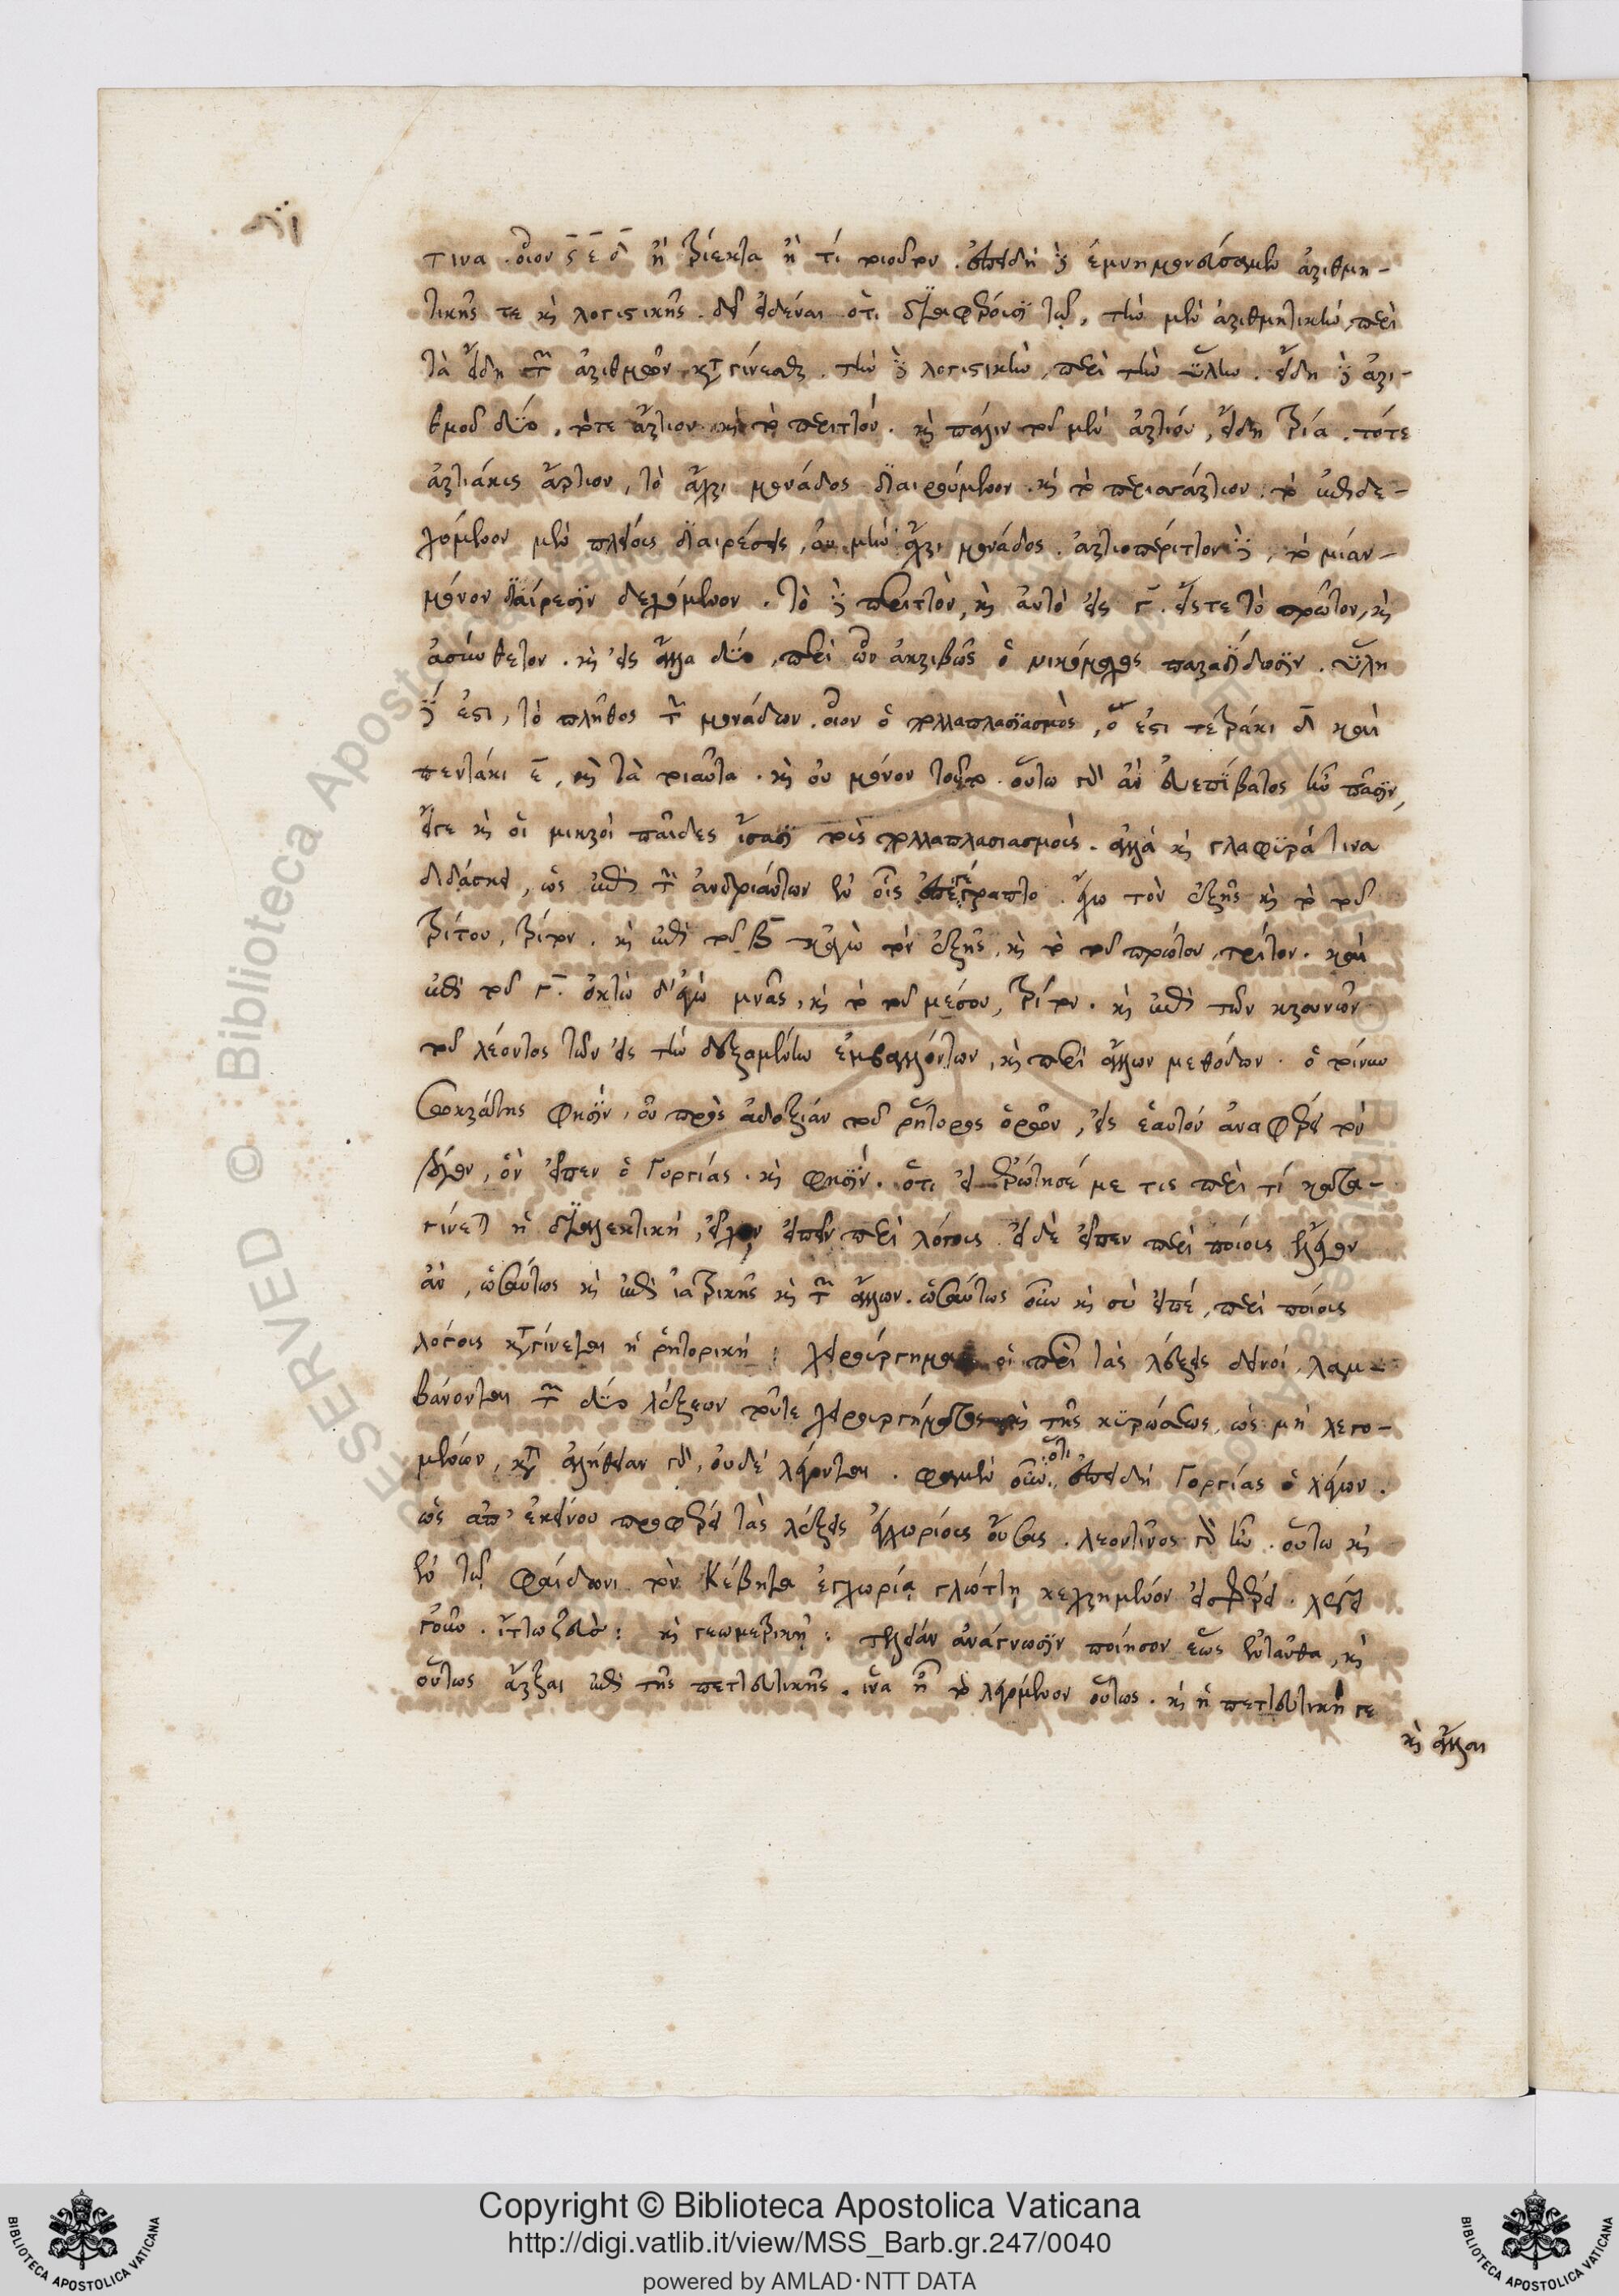 τινα. οἷον ς ε δ ἢ τρίεκτα ἢ τί τοιοῦτον. ἐπειδὴ δὲ ἐμνημονεύσαμεν ἀριθμη-
τικῆς τε καὶ λογιστικῆς. δεῖ εἰδέναι ὅτι διαφέρουσι τῷ, τὴν μὲν ἀριθμητικὴν, περὶ
τὰ εἴδη τῶν ἀριθμῶν καταγίνεσθαι. τὴν δὲ λογιστικὴν, περὶ τὴν ὕλην. εἴδη δὲ ἀρι-
θμοῦ δύο, τότε ἄρτιον καὶ τὸ περιττόν. καὶ πάλιν τοῦ μὲν ἀρτίου, εἴδη τρία. τότε
ἀρτιάκις ἄρτιον, τὸ ἄχρι μονάδος διαιρούμενον. καὶ τὸ περισσάρτιον. τὸ ἐπιδε-
χόμενον μὲν πλείους διαιρέσεις, οὐ μὴν ἄχρι μονάδος. ἀρτιοπέριττον δὲ, τὸ μίαν-
μόνον διαίρεσιν δεχόμενον. τὸ δὲ περιττὸν, καὶ αὐτὸ εἰς γ. εἴς τε τὸ πρῶτον, καὶ
ἀσύνθετον. καὶ εἰς ἄλλα δύο, περὶ ὧν ἀκριβῶς ὁ νικόμαχος παραδίδωσιν. ὕλη
δέ ἐστι, τὸ πλῆθος τῶν μονάδων. οἷον ὁ πολλαπλασιασμὸς, ὅ ἐστι τετράκι δ καὶ
πεντάκι ε, καὶ τὰ τοιαῦτα. καὶ οὐ μόνον τοῦτο. οὕτω γὰρ ἂν εὐεπίβατος ἦν πᾶσιν,
εἴγε καὶ οἱ μικροὶ παῖδες ἴσασι τοὺς πολλαπλασιασμούς. ἀλλὰ καὶ γλαφυρά τινα
διδάσκει, ὡς ἐπὶ τῶν ἀνδριάντων ἐν οἷς ἐπεγέγραπτο ἔχω τὸν ἑξῆς καὶ τὸ τοῦ
τρίτου, τρίτον. καὶ ἐπὶ τοῦ β κἀγὼ τὸν ἑξῆς, καὶ τὸ τοῦ πρώτου, τρίτον. καὶ
ἐπὶ τοῦ γ. ὀκτὼ δ' ἐγὼ μνᾶς, καὶ τὸ τοῦ μέσου, τρίτον. καὶ ἐπὶ τῶν κρουνῶν
τοῦ λέοντος τῶν εἰς τὴν δεξαμενὴν ἐμβαλλόντων, καὶ περὶ ἄλλων μεθόδων. ὁ τοίνυν
Σωκράτης φησὶν, οὐ πρὸς ἀδοξίαν τοῦ ῥήτορος ὁρῶν, εἰς ἑαυτὸν ἀναφέρει τὸν
λόγον, ὃν εἶπεν ὁ Γοργίας. καὶ φησὶν. ὅτι εἰ ἠρώτησέ με τις περὶ τί κατα-
γίνεται ἡ διαλεκτικὴ, εἶχον εἰπεῖν περὶ λόγους. εἰ δὲ εἶπεν περὶ ποίους ἔλεγον
ἂν, ὡσαύτως καὶ ἐπὶ ἰατρικῆς καὶ τῶν ἄλλων. ὡσαύτως οὖν καὶ σὺ εἰπέ, περὶ ποίους
λόγους καταγίνεται ἡ ῥητορική: χειρούργημα οἱ περὶ τὰς λέξεις δεινοί, λαμ-
βάνονται τῶν δύο λέξεων τοῦτε χειρουργήματος καὶ τῆς κυρώσεως, ὡς μὴ λεγο-
μένων, κατὰ ἀλήθειαν γὰρ, οὐδὲ λέγονται. φαμὲν οὖν ὅτι, ἐπειδὴ Γοργίας ὁ λέγων.
ὡς ἀπ' ἐκείνου προφέρει τὰς λέξεις ἐγχωρίους οὔσας. λεοντῖνος γὰρ ἦν. οὕτω καὶ
ἐν τῷ Φαίδωνι τὸν Κέβητα ἐγχωρία γλώττῃ κεχρημένον εἰσφέρει. λέγει
γοῦν. ἴττω ζεύς: καὶ γεωμετρική: τελείαν ἀνάγνωσιν ποίησον ἕως ἐνταῦθα, καὶ
οὕτως ἄρξαι ἐπὶ τῆς πεττευτικῆς. ἵνα ᾖ τὸ λεγόμενον οὕτως. καὶ ἡ πεττευτική γε
καὶ ἄλλαι
Copyright © Biblioteca Apostolica Vaticana
http://digi.vatlib.it/view/MSS_Barb.gr.247/0040
powered by AMLAD·NTT DATA